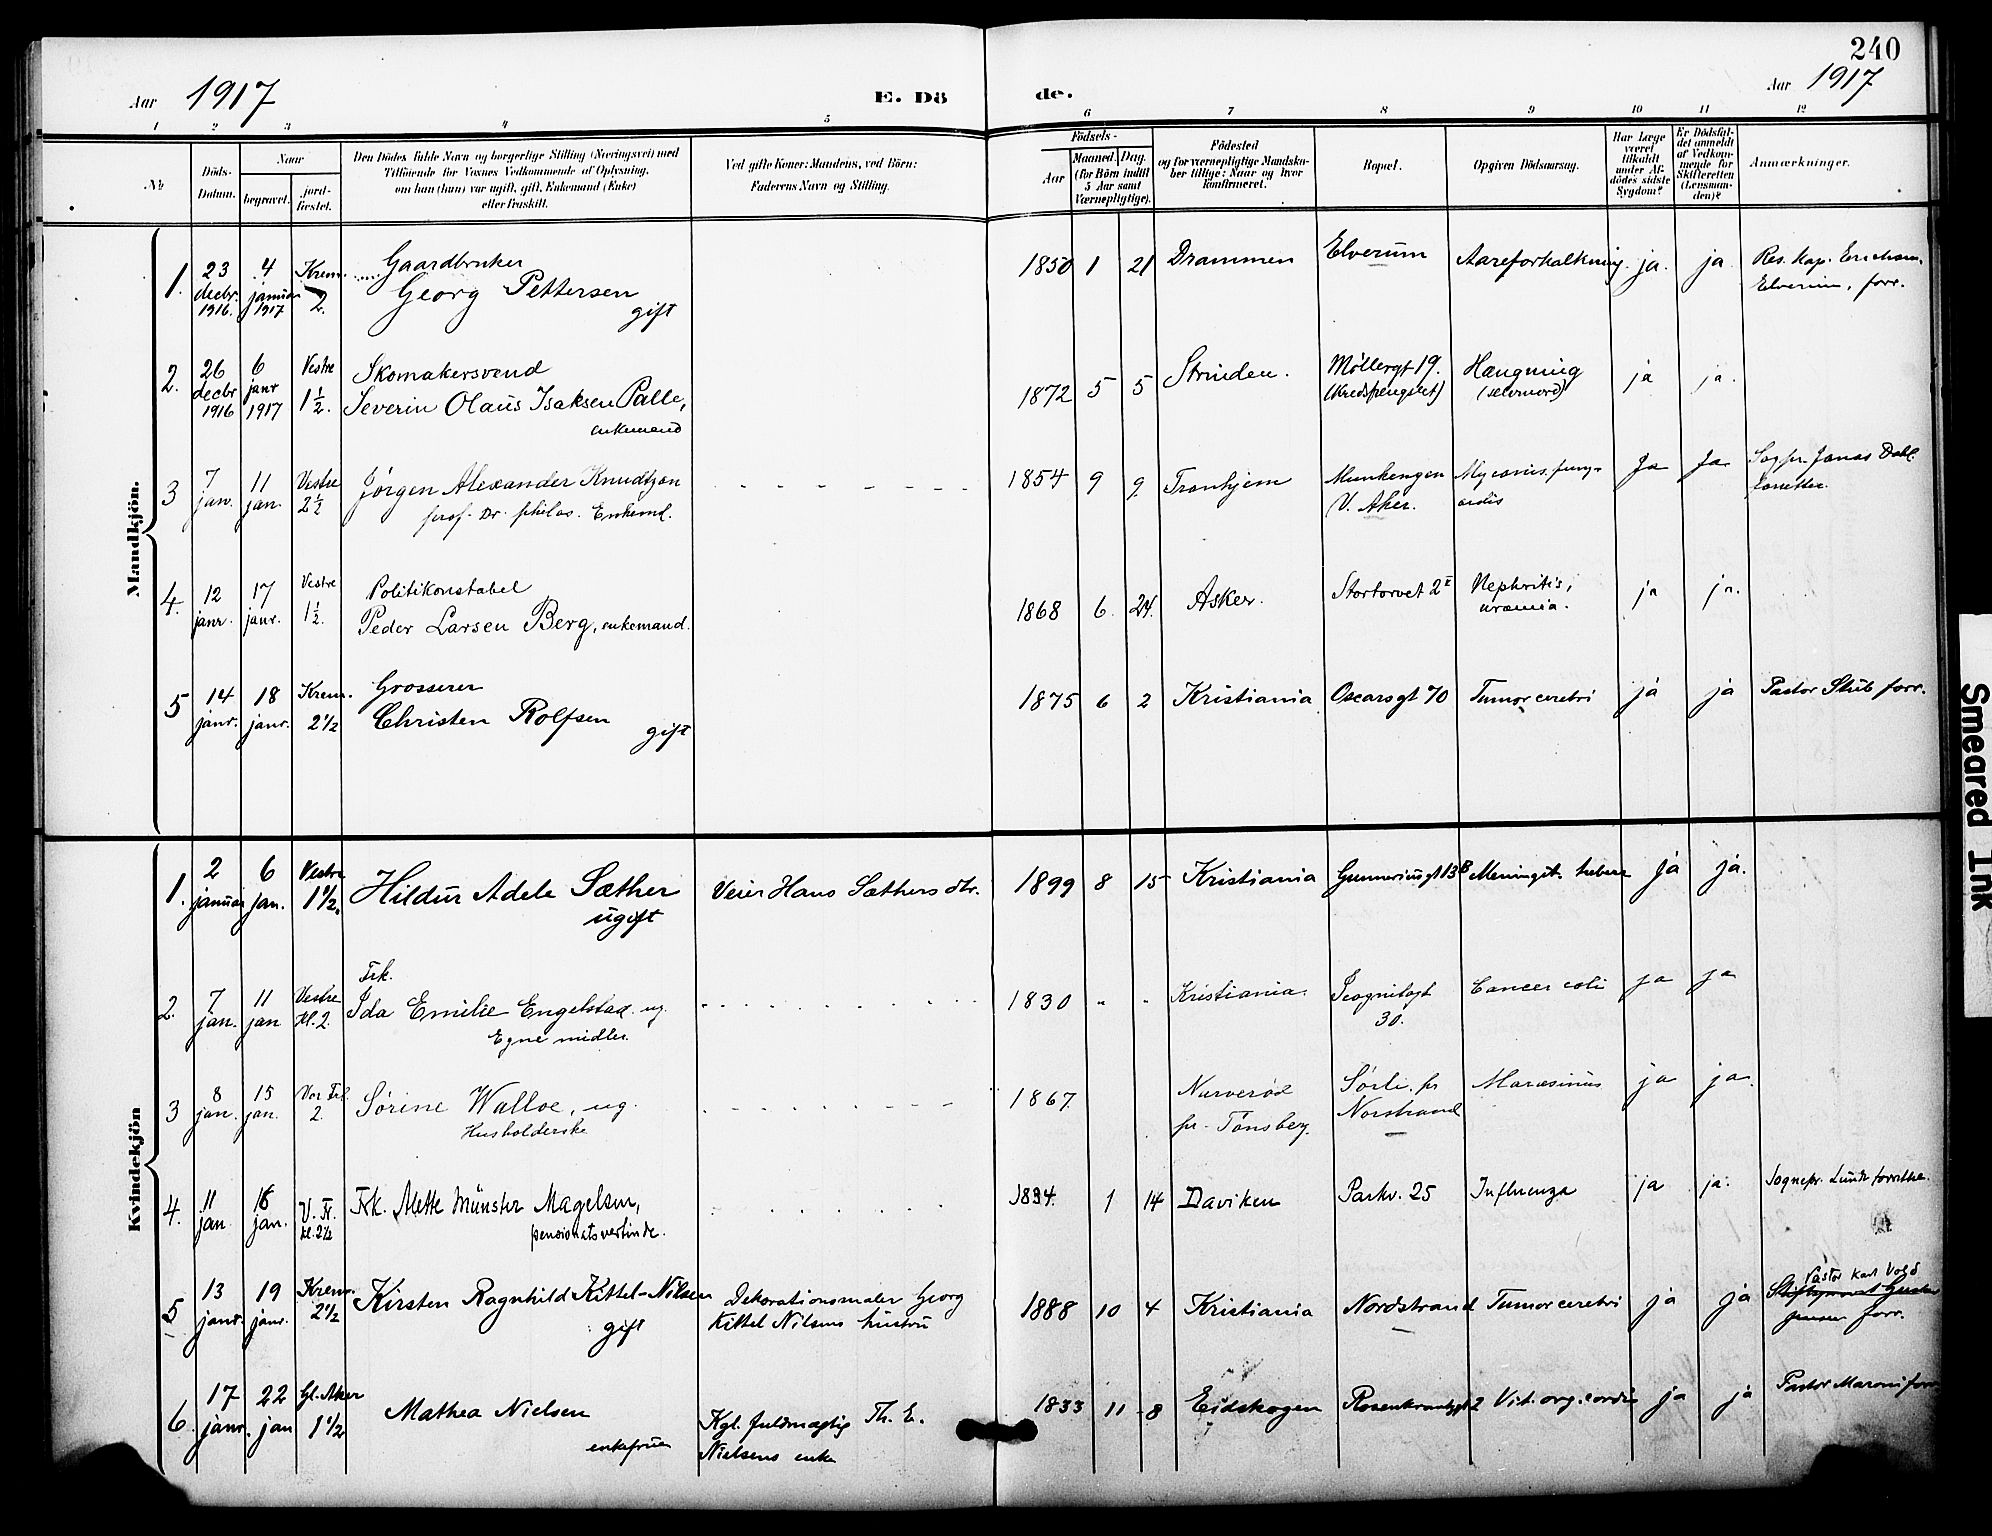 240
Aar 1917
E. Dö
de.
Aar 1917
1 2 3 4 5 6 7 8 9 10 11 12
No
Döds-
Datum.
Naar
begravet.
jord-
fæstet.
Den Dödes fulde Navn og borgerlige Stilling (Næringsvei) med
Tilföiende for Voxnes Vedkommende af Oplysning,
om han (hun) var ugift, gift, Enkemand (Enke)
eller fraskilt.
Ved gifte Koner: Mandens, ved Börn:
Faderens Navn og Stilling.
Födsels-
Aar
Maaned. Dag.
(for Börn indtil
5 Aar samt
Værnepligtige).
Födested
og for værnepligtige Mandska-
ber tillige: Naar og hvor
konfirmeret.
Bopæl.
Opgiven Dödsaarsag.
Har Læge
været
tilkaldt
under Af-
dödes sidste
Sygdom?
Er Dödsfal-
det anmeldt
af Vedkom-
mende for
Skifteretten
(Lensman-
den)?
Anmærkninger.
Mandkjön.
1. 23 decbr. 1916. 4 januar 1917 Krem. 2. Gaardbruker
Georg Pettersen
gift
1850 1 21 Drammen Elverum Aareforkalkning. ja. ja Res. kap. Erichsen,
Elverum, forr.
2. 26 decbr 1916 6 janr 1917 Vestre 1½. Skomakersvend
Severin Olaus Isaksen Palle,
enkemand
1872 5 5 Strinden. Møllergt 19.
(Kredsfengslet)
Hængning
(selvmord)
ja ja.
3 7 jan. 11 jan. Vestre 2½ Jörgen Alexander Knudtzon
prof. Dr. philos. Enkemd.
1854 9 9. Tronhjem Munkengen
V. Aker.
Ja Ja Sogpr. Jonas Dahl
forretter.
4. 12 janr. 17 janr. Vestre 1½. Politikonstabel
Peder Larsen Berg, enkemand.
1868 6. 24. Asker. Stortorvet 2 Nephritis,
uræmia.
ja ja.
5 14 janr. 18 janr. Krem. 2½ Grosserer
Christen Rolfsen
gift
1875 6 2 Kristiania Oscarsgt 70 Tumor cerebri ja ja Pastor Stub forr.
Kvindekjön
1. 2 januar 6 jan. Vestre 1½. Hildur Adele Sæther
ugift
Veier Hans Sæthers dtr.
1899 8 15 Kristiania Gunneriusgt 13B Meningit. tuberc ja ja.
2. 7 jan. 11 jan Vestre Kl. 2. Frk.
Ida Emilie Engelstad. ug.
Egne midler.
1830 " " Kristiania. Incognitogt
30.
Cancer coli ja ja
3 8 jan. 15 jan. Vor Frl. 2. Sørine Walloe, ug.
Husholderske
1867. Narverød
pr. Tönsberg.
Sørli. pr
Norstrand
Marasmus ja ja.
4. 11 jan. 16 jan. V. Fr. kl. 2½ Frk. Alette Münster Magelsen,
pensionatsvertinde.
1834. 1 14 Daviken Parkv. 25 Influenza ja ja. Sognepr. Lunde forrettee.
5 13 janr. 19 janr. Krem. 2½ Kirsten Ragnhild Kittel-Nilsen
gift
Dekorationsmaler Georg
Kittel Nilsens hustru
1888 10 4 Kristiania Nordstrand Tumor cerebri ja ja Pastor Karl Vold
forr.
6. 17 janr. 22 jan Gl. Aker 1½ Mathea Nielsen
enkefrue
Kgl. fuldmægtig Th. E.
Nielsens enke
1833 11 8 Eidskogen Rosenkrantzgt 2 Vit. org. cordis ja ja Pastor Maroni forr.
Smeared Ink